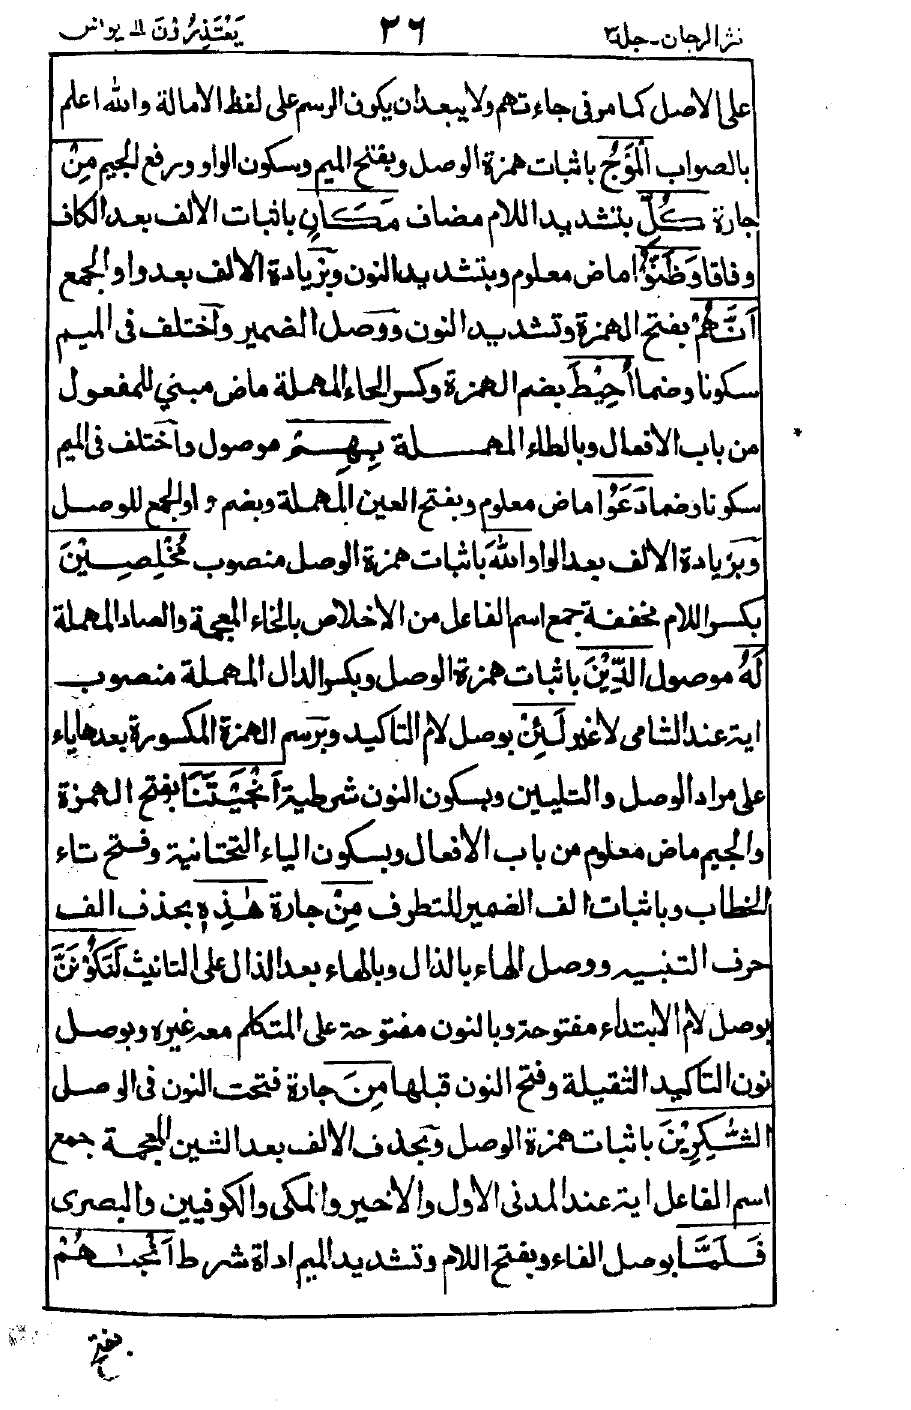 نثر المرجان - جلد٣
٢٦
يَعْتَذِرُوْنَ ١١ يونس
على الاصل كما مر فى جاءتهم ولا يبعد ان يكون الرسم على لفظ الامالة والله اعلم
بالصواب الْمَوْجُ باثبات همزة الوصل وبفتح الميم وسكون الواو ورفع الجيم مِنْ
جارة كُلِّ بتشديد اللام مضاف مَكَانٍ باثبات الالف بعد الكاف
وفاقا وَظَنُّوْا ماض معلوم وبتشديد النون وبزيادة الالف بعد واو الجمع
اَنَّهُمْ بفتح الهمزة وتشديد النون ووصل الضمير واختلف فى الميم
سكونا وضما اُحِيْطَ بضم الهمزة وكسر الحاء المهملة ماض مبني للمفعول
من باب الافعال وبالطاء المهملة بِهِمْ موصول واختلف فى الميم
سكونا وضما دَعَوُا ماض معلوم وبفتح العين المهملة وبضم واو الجمع للوصل
وبزيادة الالف بعد الواو اللهَ باثبات همزة الوصل منصوب مُخْلِصِيْنَ
بكسر اللام مخففة جمع اسم الفاعل من الاخلاص بالخاء المعجمة والصاد المهملة
لَهُ موصول الدِّيْنَ باثبات همزة الوصل وبكسر الدال المهملة منصوب
اية عند الشامى لا غير لَئِنْ بوصل لام التاكيد وبرسم الهمزة المكسورة بعدها ياء
على مراد الوصل والتليين وبسكون النون شرطية اَنْجَيْتَنَا بفتح الهمزة
والجيم ماض معلوم من باب الافعال وبسكون الياء التحتانية وفتح تاء
الخطاب وباثبات الف الضمير للتطرف مِنْ جارة هٰذِهٖ بحذف الف
حرف التنبيه ووصل الهاء بالذال وبالهاء بعد الذال على التانيث لَنَكُوْنَنَّ
بوصل لام الابتداء مفتوحة وبالنون مفتوحة على المتكلم معه غيره وبوصل
نون التاكيد الثقيلة وفتح النون قبلها مِنَ جارة فتحت النون فى الوصل
الشّٰكِرِيْنَ باثبات همزة الوصل وبحذف الالف بعد الشين المعجمة جمع
اسم الفاعل اية عند المدنى الاول والاخير والمكى والكوفيين والبصرى
فَلَمَّا بوصل الفاء وبفتح اللام وتشديد الميم اداة شرط اَنْجٰىهُمْ
بفتح